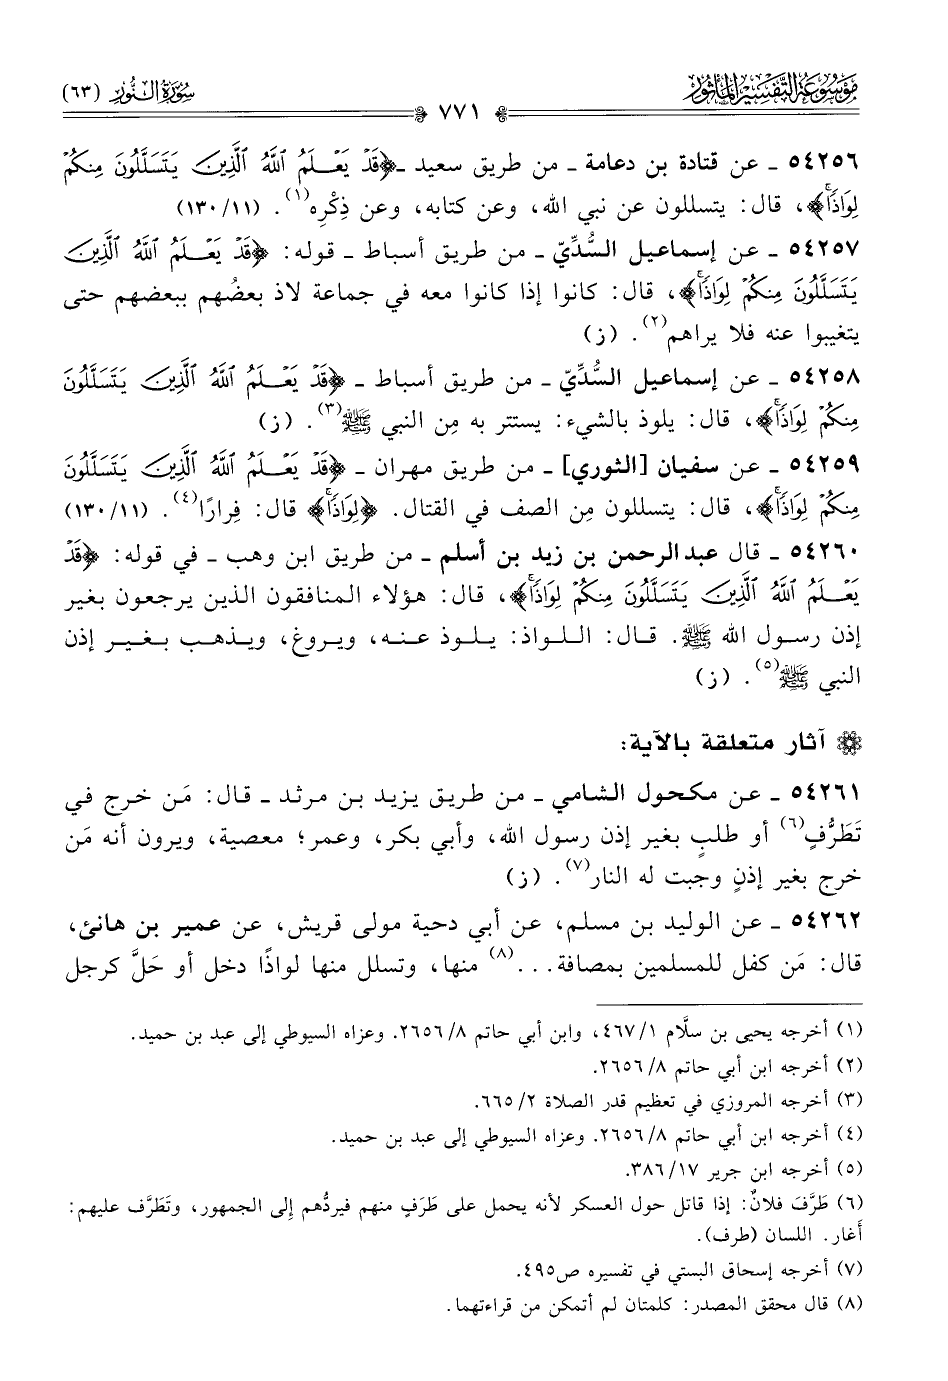 مَوْسُوعَة التَّفْسِيْر المَأْثُور
سُورَةُ النُّور (٦٣)
٧٧١
٥٤٢٥٦ ـ عن قتادة بن دعامة ـ من طريق سعيد ـ ﴿قَدْ يَعْلَمُ اللَّهُ الَّذِينَ يَتَسَلَّلُونَ مِنكُمْ
لِوَاذًا﴾، قال: يتسللون عن نبي الله، وعن كتابه، وعن ذِكْرِه(١). (١١/ ١٣٠)
٥٤٢٥٧ ـ عن إسماعيل السُّدِّيّ ـ من طريق أسباط ـ قوله: ﴿قَدْ يَعْلَمُ اللَّهُ الَّذِينَ
يَتَسَلَّلُونَ مِنكُمْ لِوَاذًا﴾، قال: كانوا إذا كانوا معه في جماعة لاذ بعضُهم ببعضهم حتى
يتغيبوا عنه فلا يراهم(٢). (ز)
٥٤٢٥٨ ـ عن إسماعيل السُّدِّيّ ـ من طريق أسباط ـ ﴿قَدْ يَعْلَمُ اللَّهُ الَّذِينَ يَتَسَلَّلُونَ
مِنكُمْ لِوَاذًا﴾، قال: يلوذ بالشيء: يستتر به مِن النبي ﷺ(٣). (ز)
٥٤٢٥٩ ـ عن سفيان [الثوري] ـ من طريق مهران ـ ﴿قَدْ يَعْلَمُ اللَّهُ الَّذِينَ يَتَسَلَّلُونَ
مِنكُمْ لِوَاذًا﴾، قال: يتسللون مِن الصف في القتال. ﴿لِوَاذًا﴾ قال: فِرارًا(٤). (١١/ ١٣٠)
٥٤٢٦٠ ـ قال عبد الرحمن بن زيد بن أسلم ـ من طريق ابن وهب ـ في قوله: ﴿قَدْ
يَعْلَمُ اللَّهُ الَّذِينَ يَتَسَلَّلُونَ مِنكُمْ لِوَاذًا﴾، قال: هؤلاء المنافقون الذين يرجعون بغير
إذن رسول الله ﷺ. قال: اللواذ: يلوذ عنه، ويروغ، ويذهب بغير إذن
النبي ﷺ(٥). (ز)
آثار متعلقة بالآية:
٥٤٢٦١ ـ عن مكحول الشامي ـ من طريق يزيد بن مرثد ـ قال: مَن خرج في
تَطَرُّفٍ(٦) أو طلبٍ بغير إذن رسول الله، وأبي بكر، وعمر؛ معصية، ويرون أنه مَن
خرج بغير إذنٍ وجبت له النار(٧). (ز)
٥٤٢٦٢ ـ عن الوليد بن مسلم، عن أبي دحية مولى قريش، عن عمير بن هانئ،
قال: مَن كفل للمسلمين بمصافة...(٨) منها، وتسلل منها لواذًا دخل أو حَلَّ كرجل
(١) أخرجه يحيى بن سلَّام ١/ ٤٦٧، وابن أبي حاتم ٨/ ٢٦٥٦. وعزاه السيوطي إلى عبد بن حميد.
(٢) أخرجه ابن أبي حاتم ٨/ ٢٦٥٦.
(٣) أخرجه المروزي في تعظيم قدر الصلاة ٢/ ٦٦٥.
(٤) أخرجه ابن أبي حاتم ٨/ ٢٦٥٦. وعزاه السيوطي إلى عبد بن حميد.
(٥) أخرجه ابن جرير ١٧/ ٣٨٦.
(٦) طَرَّفَ فلانٌ: إذا قاتل حول العسكر لأنه يحمل على طَرَفٍ منهم فيردُّهم إلى الجمهور، وتَطَرَّف عليهم:
أغار. اللسان (طرف).
(٧) أخرجه إسحاق البستي في تفسيره ص٤٩٥.
(٨) قال محقق المصدر: كلمتان لم أتمكن من قراءتهما.